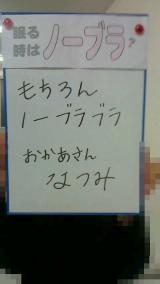 眠る
時は
ノーブラ?
もちろん
ノーブラブラ
おかあさん
なつみ